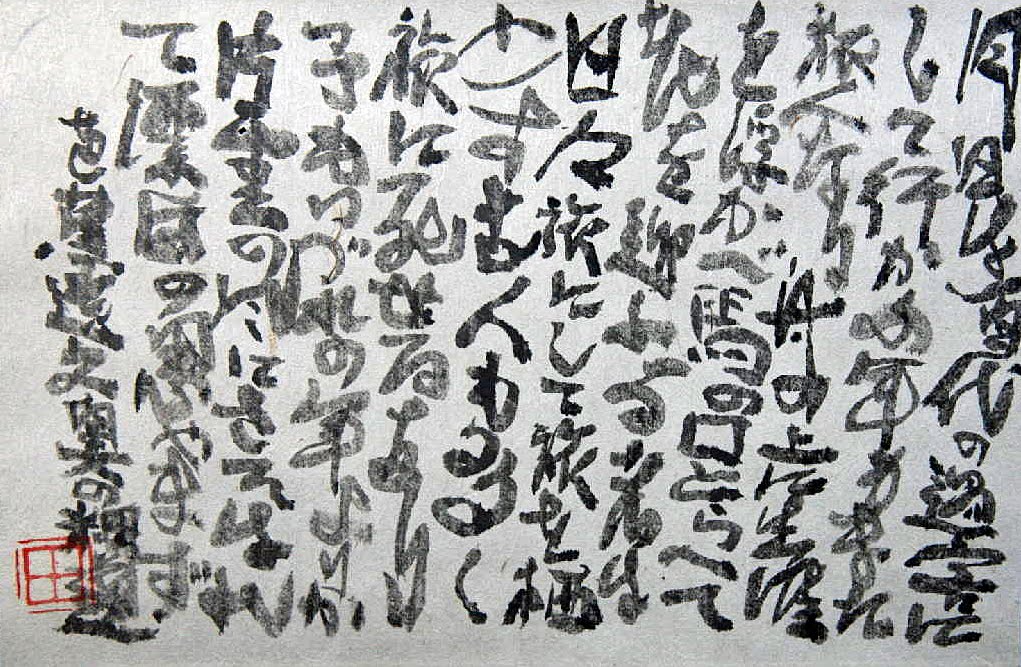 月日は百代の過客に
して行かふ年も又
旅人なり舟の上に生涯
を浮かべ馬の口とらへて
老を迎ふる者は
日々旅にして旅を栖
とす古人も多く
旅に死せるあり
予もいづれの年よりか
片雲の風にさそはれ
て漂泊の思ひやまず
芭蕉 奥の細道
田